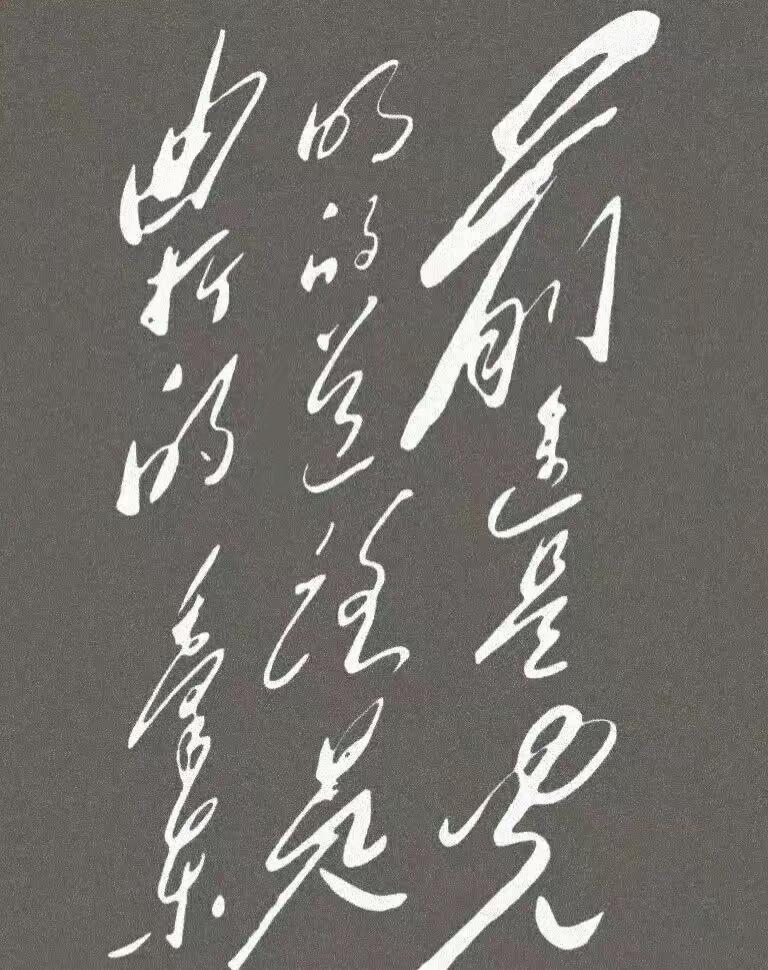 前途是光
明的道路是
曲折的 毛泽东